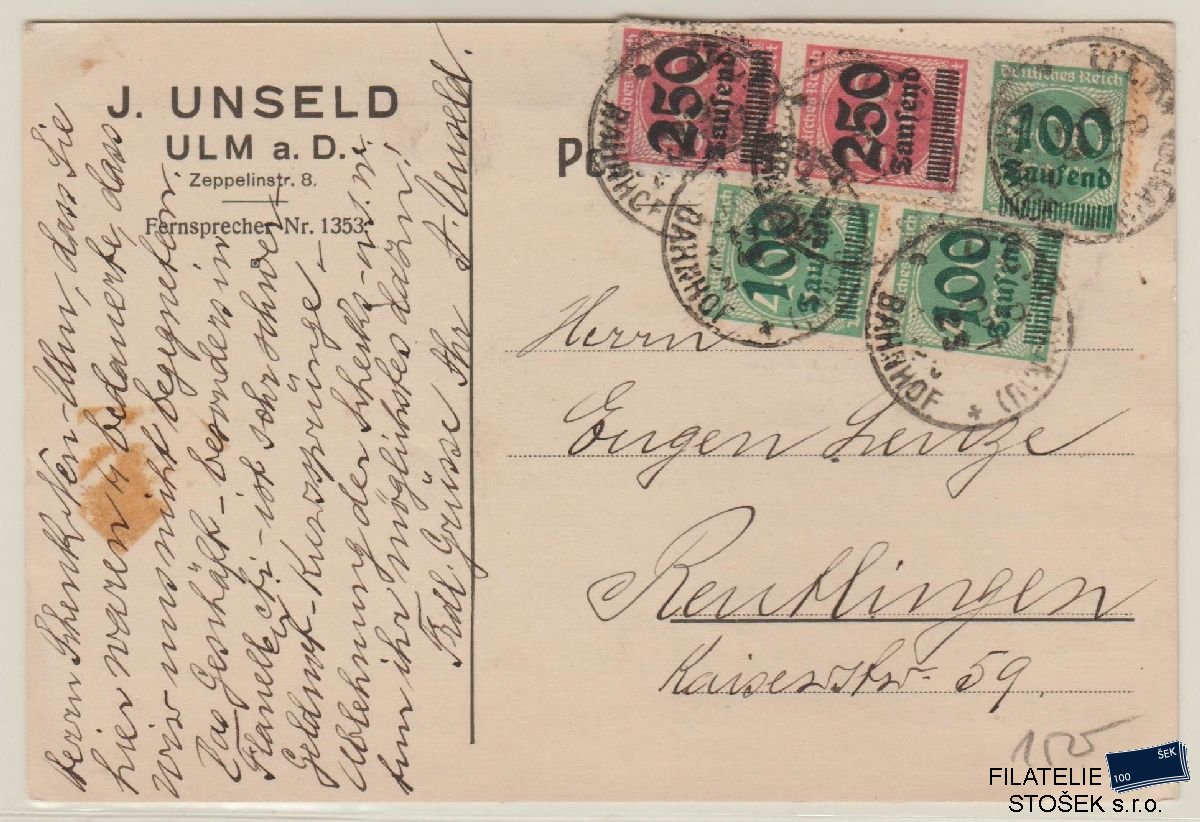 J. UNSELD
ULM a. D.
Zeppelinstr. 8.
Fernsprecher Nr. 1353.
250
Tausend
250
Tausend
Deutsches Reich
100
Tausend
400
Tausend
100
Tausend
BAHNHOF
BAHNHOF
BAHNHOF
Herrn
Eugen Lenze
Reutlingen
Kaiserstr. 59.
Herrn Schenk Neu-Ulm, dass Sie
hier waren & bedauerte, dass
wir uns nicht begegneten.
Das Geschäft - besonders in
- ist sehr schwer
Geldnot - Kurssprünge -
Ablehnung der Schecks - u.s.w.
tun ihr möglichstes dazu!
Frdl. Grüsse Ihr A. Unseld.
1525
FILATELIE
STOŠEK s.r.o.
100
ŠEK